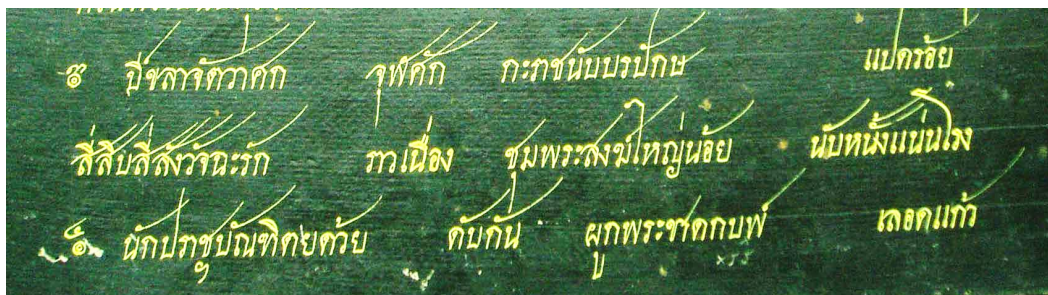 ๏ ปีขลาจัตวาศก จุฬศัก กะราชนับบรปักษ แปดร้อย
สี่สิบสี่สังวัจฉะรัก ราวเนื่อง ชุมพระสงฆใหญ่น้อย นับหนั้งแน่นโรง
๏ นักปราชบัณฑิตยด้วย ดับกัน ผูกพระชาดกบพี เลอดแก้ว